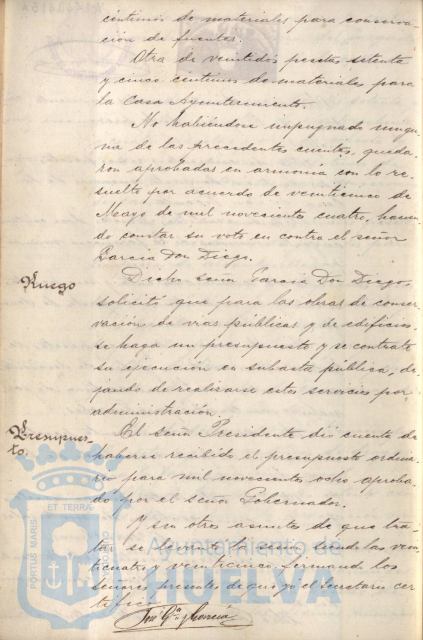 céntimos de materiales para conserva-
ción de fuentes.
Otra de veintidos pesetas setenta
y cinco céntimos de materiales para
la Casa Ayuntamiento.
No habiéndose impugnado ningu-
na de las precedentes cuentas, queda-
ron aprobadas en armonía con lo re-
suelto por acuerdo de veinticinco de
Mayo de mil novecientos cuatro, hacien-
do constar su voto en contra el señor
García Don Diego.
Ruego
Dicho señor García Don Diego,
solicitó que para las obras de conser-
vación de vías públicas y de edificios,
se haga un presupuesto y se contrate
su ejecución en subasta pública, de-
jando de realizarse estos servicios por
administración.
Presupues-
to.
El señor Presidente dió cuenta de
haberse recibido el presupuesto ordina-
rio para mil novecientos ocho aproba-
do por el señor Gobernador.
Y sin otros asuntos de que tra-
tar se levantó la sesión siendo las vein-
ticuatro y veinticinco, firmando los
señores presentes de que yo el Secretario cer-
tifico.
José Gª y García
PORTUS MARIS ET TERRÆ
Ayuntamiento de
HUELVA